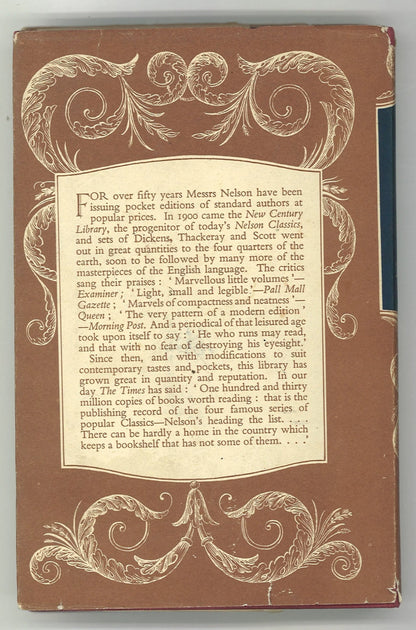 FOR over fifty years Messrs Nelson have been
issuing pocket editions of standard authors at
popular prices. In 1900 came the New Century
Library, the progenitor of today's Nelson Classics,
and sets of Dickens, Thackeray and Scott went
out in great quantities to the four quarters of the
earth, soon to be followed by many more of the
masterpieces of the English language. The critics
sang their praises : ' Marvellous little volumes '—
Examiner ; ' Light, small and legible '—Pall Mall
Gazette ; ' Marvels of compactness and neatness '—
Queen ; ' The very pattern of a modern edition '
—Morning Post. And a periodical of that leisured age
took upon itself to say : ' He who runs may read,
and that with no fear of destroying his eyesight.'
Since then, and with modifications to suit
contemporary tastes and pockets, this library has
grown great in quantity and reputation. In our
day The Times has said : ' One hundred and thirty
million copies of books worth reading : that is the
publishing record of the four famous series of
popular Classics—Nelson's heading the list. . . .
There can be hardly a home in the country which
keeps a bookshelf that has not some of them. . . .'